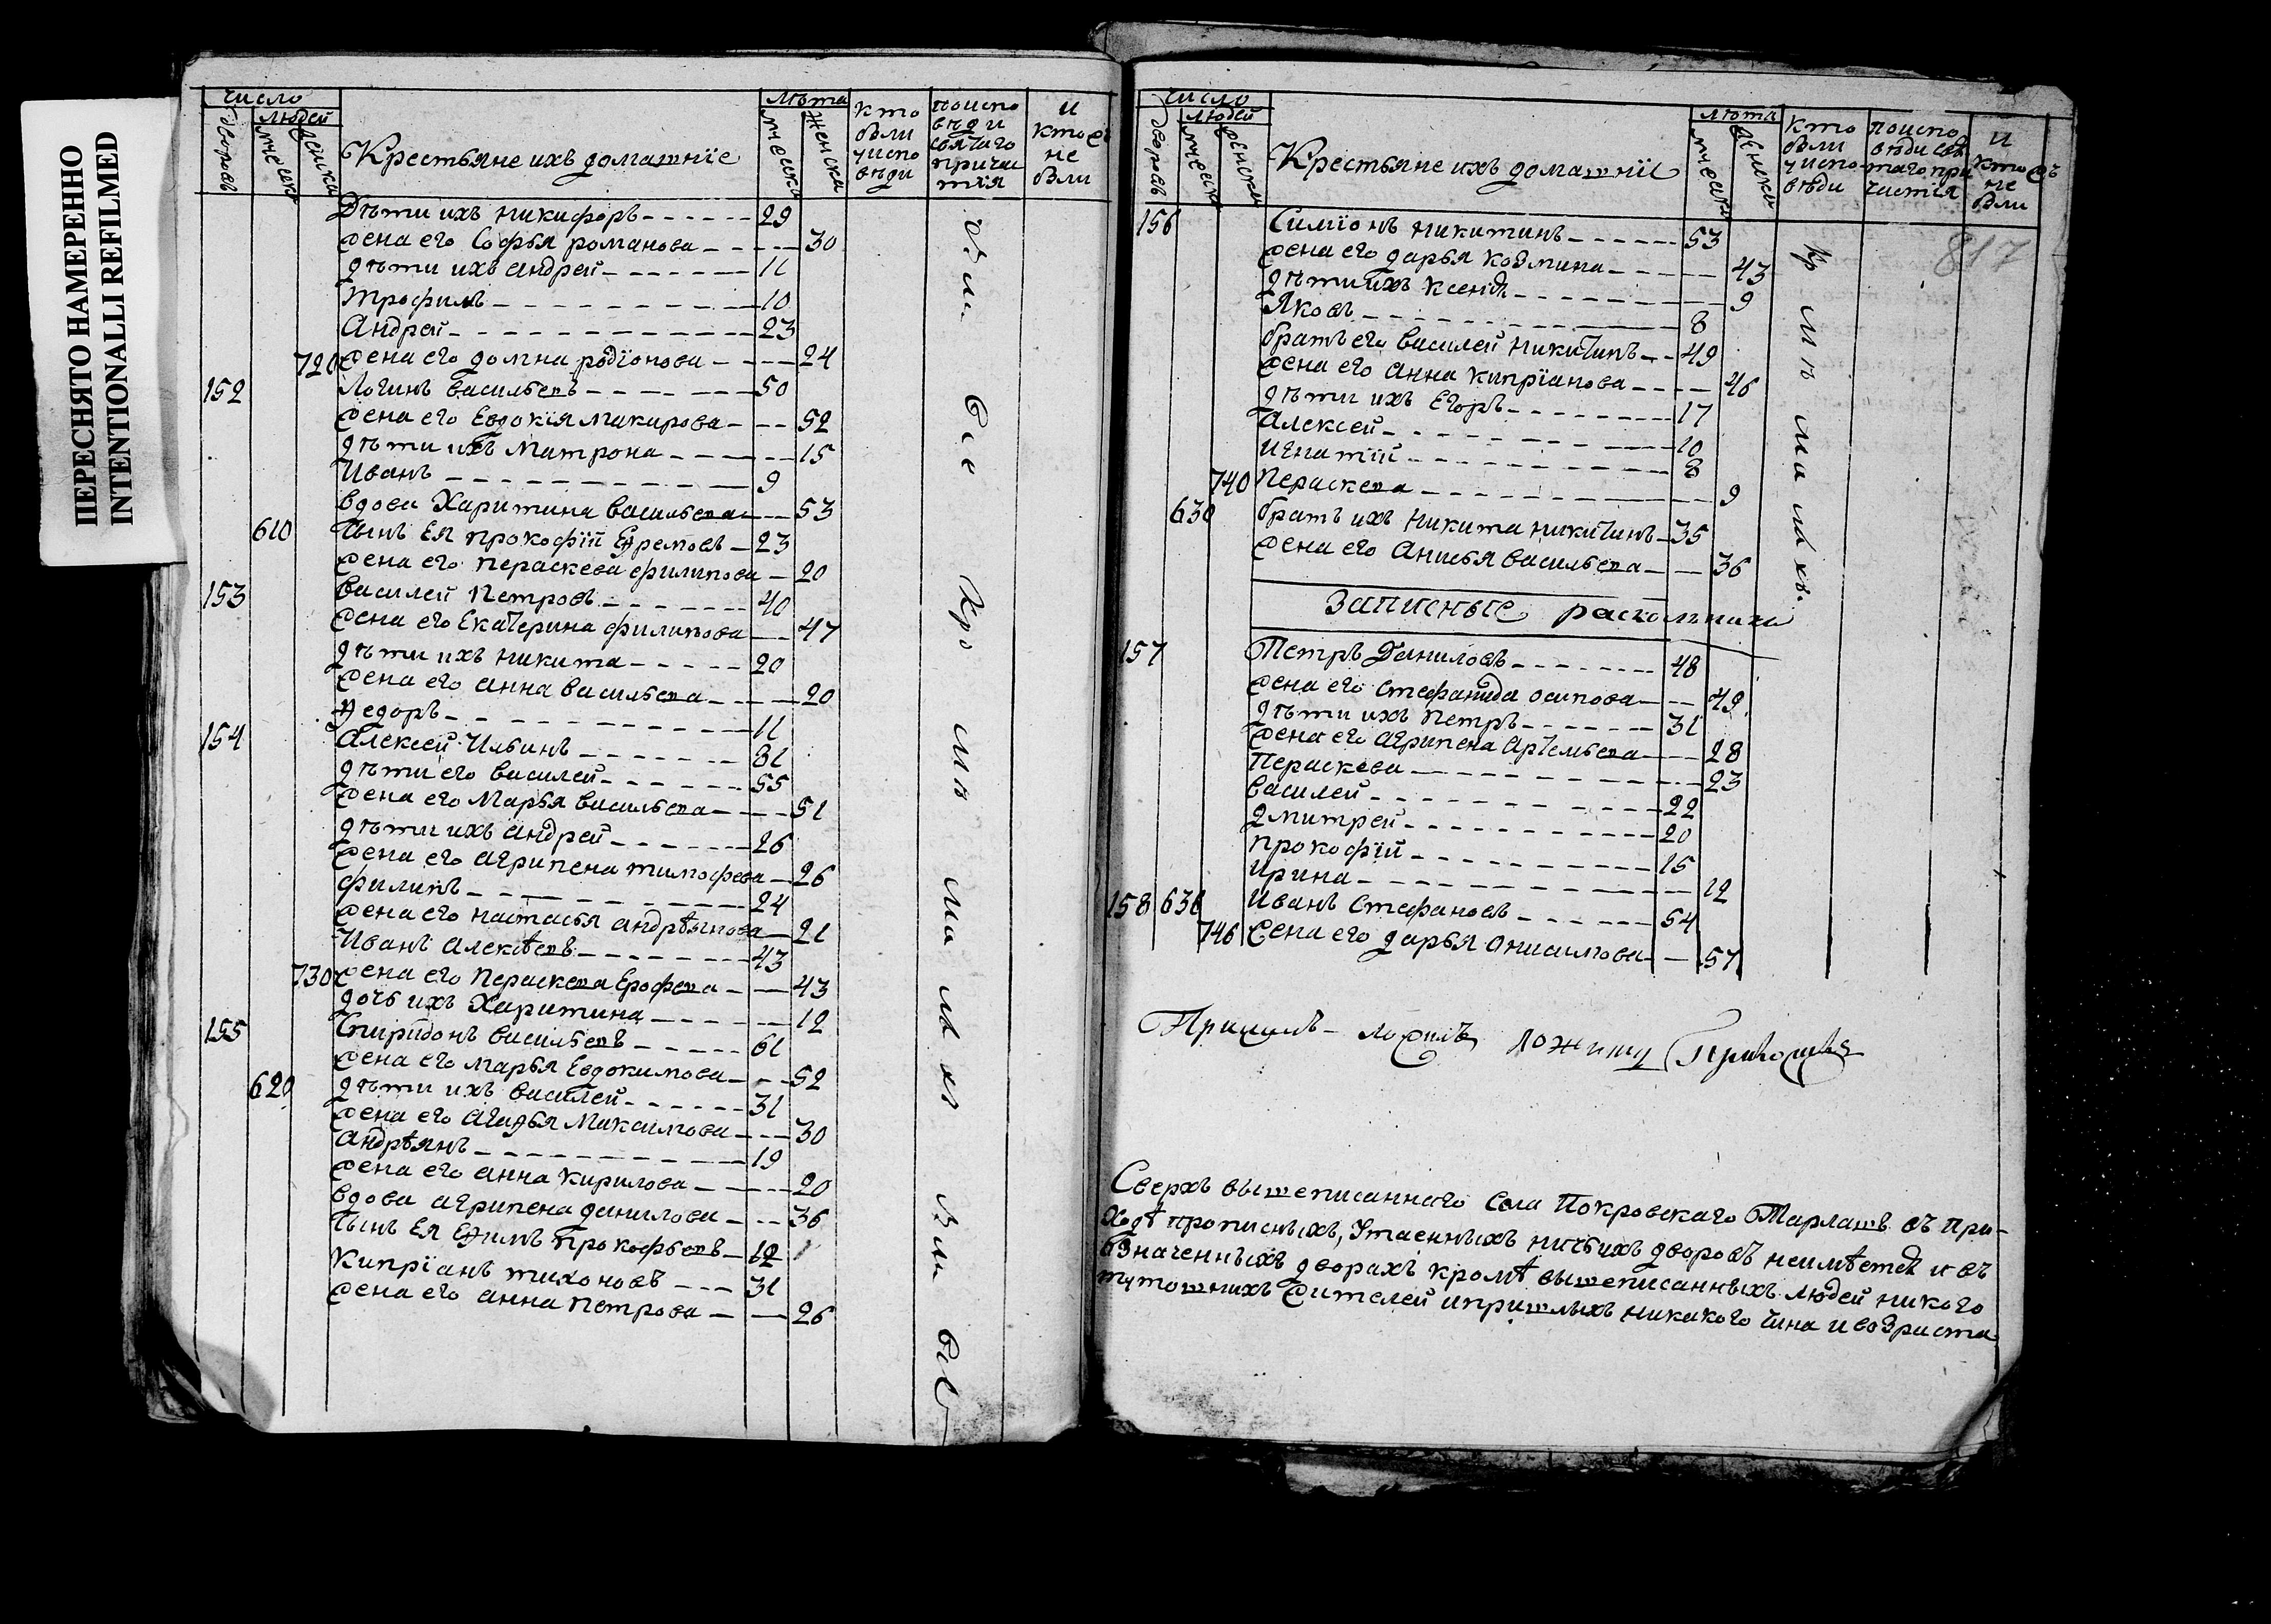 ПЕРЕСНЯТО НАМЕРЕННО
INTENTIONALLI REFILMED
число
людей
дворовъ
мческа
женска
Крестьяне ихъ домашнїе
лѣта
мческа
женска
кто
были
у испо
вѣди
по испо
вѣди
святаго
причас
тия
и
кто
не
были
Дѣти ихъ Никифоръ 29
жена его Софья Романова 30
дѣти ихъ Андрей 11
Трофимъ 10
Андрей 23
720 жена его Домна Родїонова 24
152 Логинъ Васильевъ 50
жена его Евдокїя Макирова 52
дѣти ихъ Матрона 15
Иванъ 9
вдова Харитина Васильева 53
610 сынъ ея Прокофїй Ефремовъ 23
жена его Пераскева Филипова 20
153 Василей Петровъ 40
жена его Екатерина Филипова 47
дѣти ихъ Никита 20
жена его Анна Васильева 20
Ѳедоръ 11
154 Алексей Ильинъ 81
дѣти его Василей 55
жена его Марья Васильева 51
дѣти ихъ Андрей 26
жена его Агрипена Тимофеева 26
Филипъ 24
жена его Настасья Андрѣянова 21
Иванъ Алексѣевъ 43
730 жена его Пераскева Ерофева 43
дочь ихъ Харитина 12
155 Спиридонъ Васильевъ 61
жена его Марья Евдокимова 52
620 дѣти ихъ Василей 31
жена его Агафья Максимова 30
Андрѣянъ 19
жена его Анна Кирилова 20
вдова Агрипена Данилова 36
сынъ ея Ефимъ Прокофьевъ 12
Кипрїанъ Тихоновъ 31
жена его Анна Петрова 26
были все кро мѣ ма лы хъ
число
людей
дворовъ
мческа
женска
Крестьяне ихъ домашнїе
лѣта
мческа
женска
кто
были
у испо
вѣди
по испо
вѣди свя
таго при
частїя
и
кто
не
были
817
156 Симїонъ Никитинъ 53
жена его Дарья Козмина 43
дѣти ихъ Ксенія 9
Яковъ 8
братъ его Василей Никитинъ 49
жена его Анна Кипрїанова 46
дѣти ихъ Егоръ 17
Алексей 10
Игнатїй 8
740 Пераскева 9
630 братъ ихъ Никита Никитинъ 35
жена его Анисья Васильева 36
кр мѣ ма лы хъ.
Записные раскольники
157 Петръ Даниловъ 48
жена его Стефанида Осипова 49
дѣти ихъ Петръ 31
жена его Агрипена Артемьева 28
Пераскева 23
Василей 22
Дмитрей 20
Прокофїй 15
Ирина 12
158 636 Иванъ Стефановъ 54
746 жена его Дарья Онисимова 57
Сверхъ вышеписаннаго села Покровскаго Тарлашъ въ при-
ходѣ прописныхъ, утаенныхъ ничьихъ дворовъ неимѣетца и въ
означенныхъ дворахъ кромѣ вышеписанныхъ людей никого
тутошнихъ жителей ипришлыхъ никакого чина и возраста